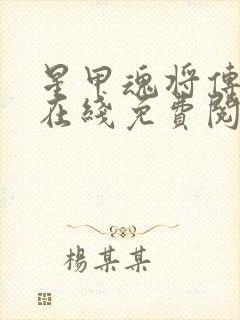 星甲魂将傳
在綫免費閱
楊某某